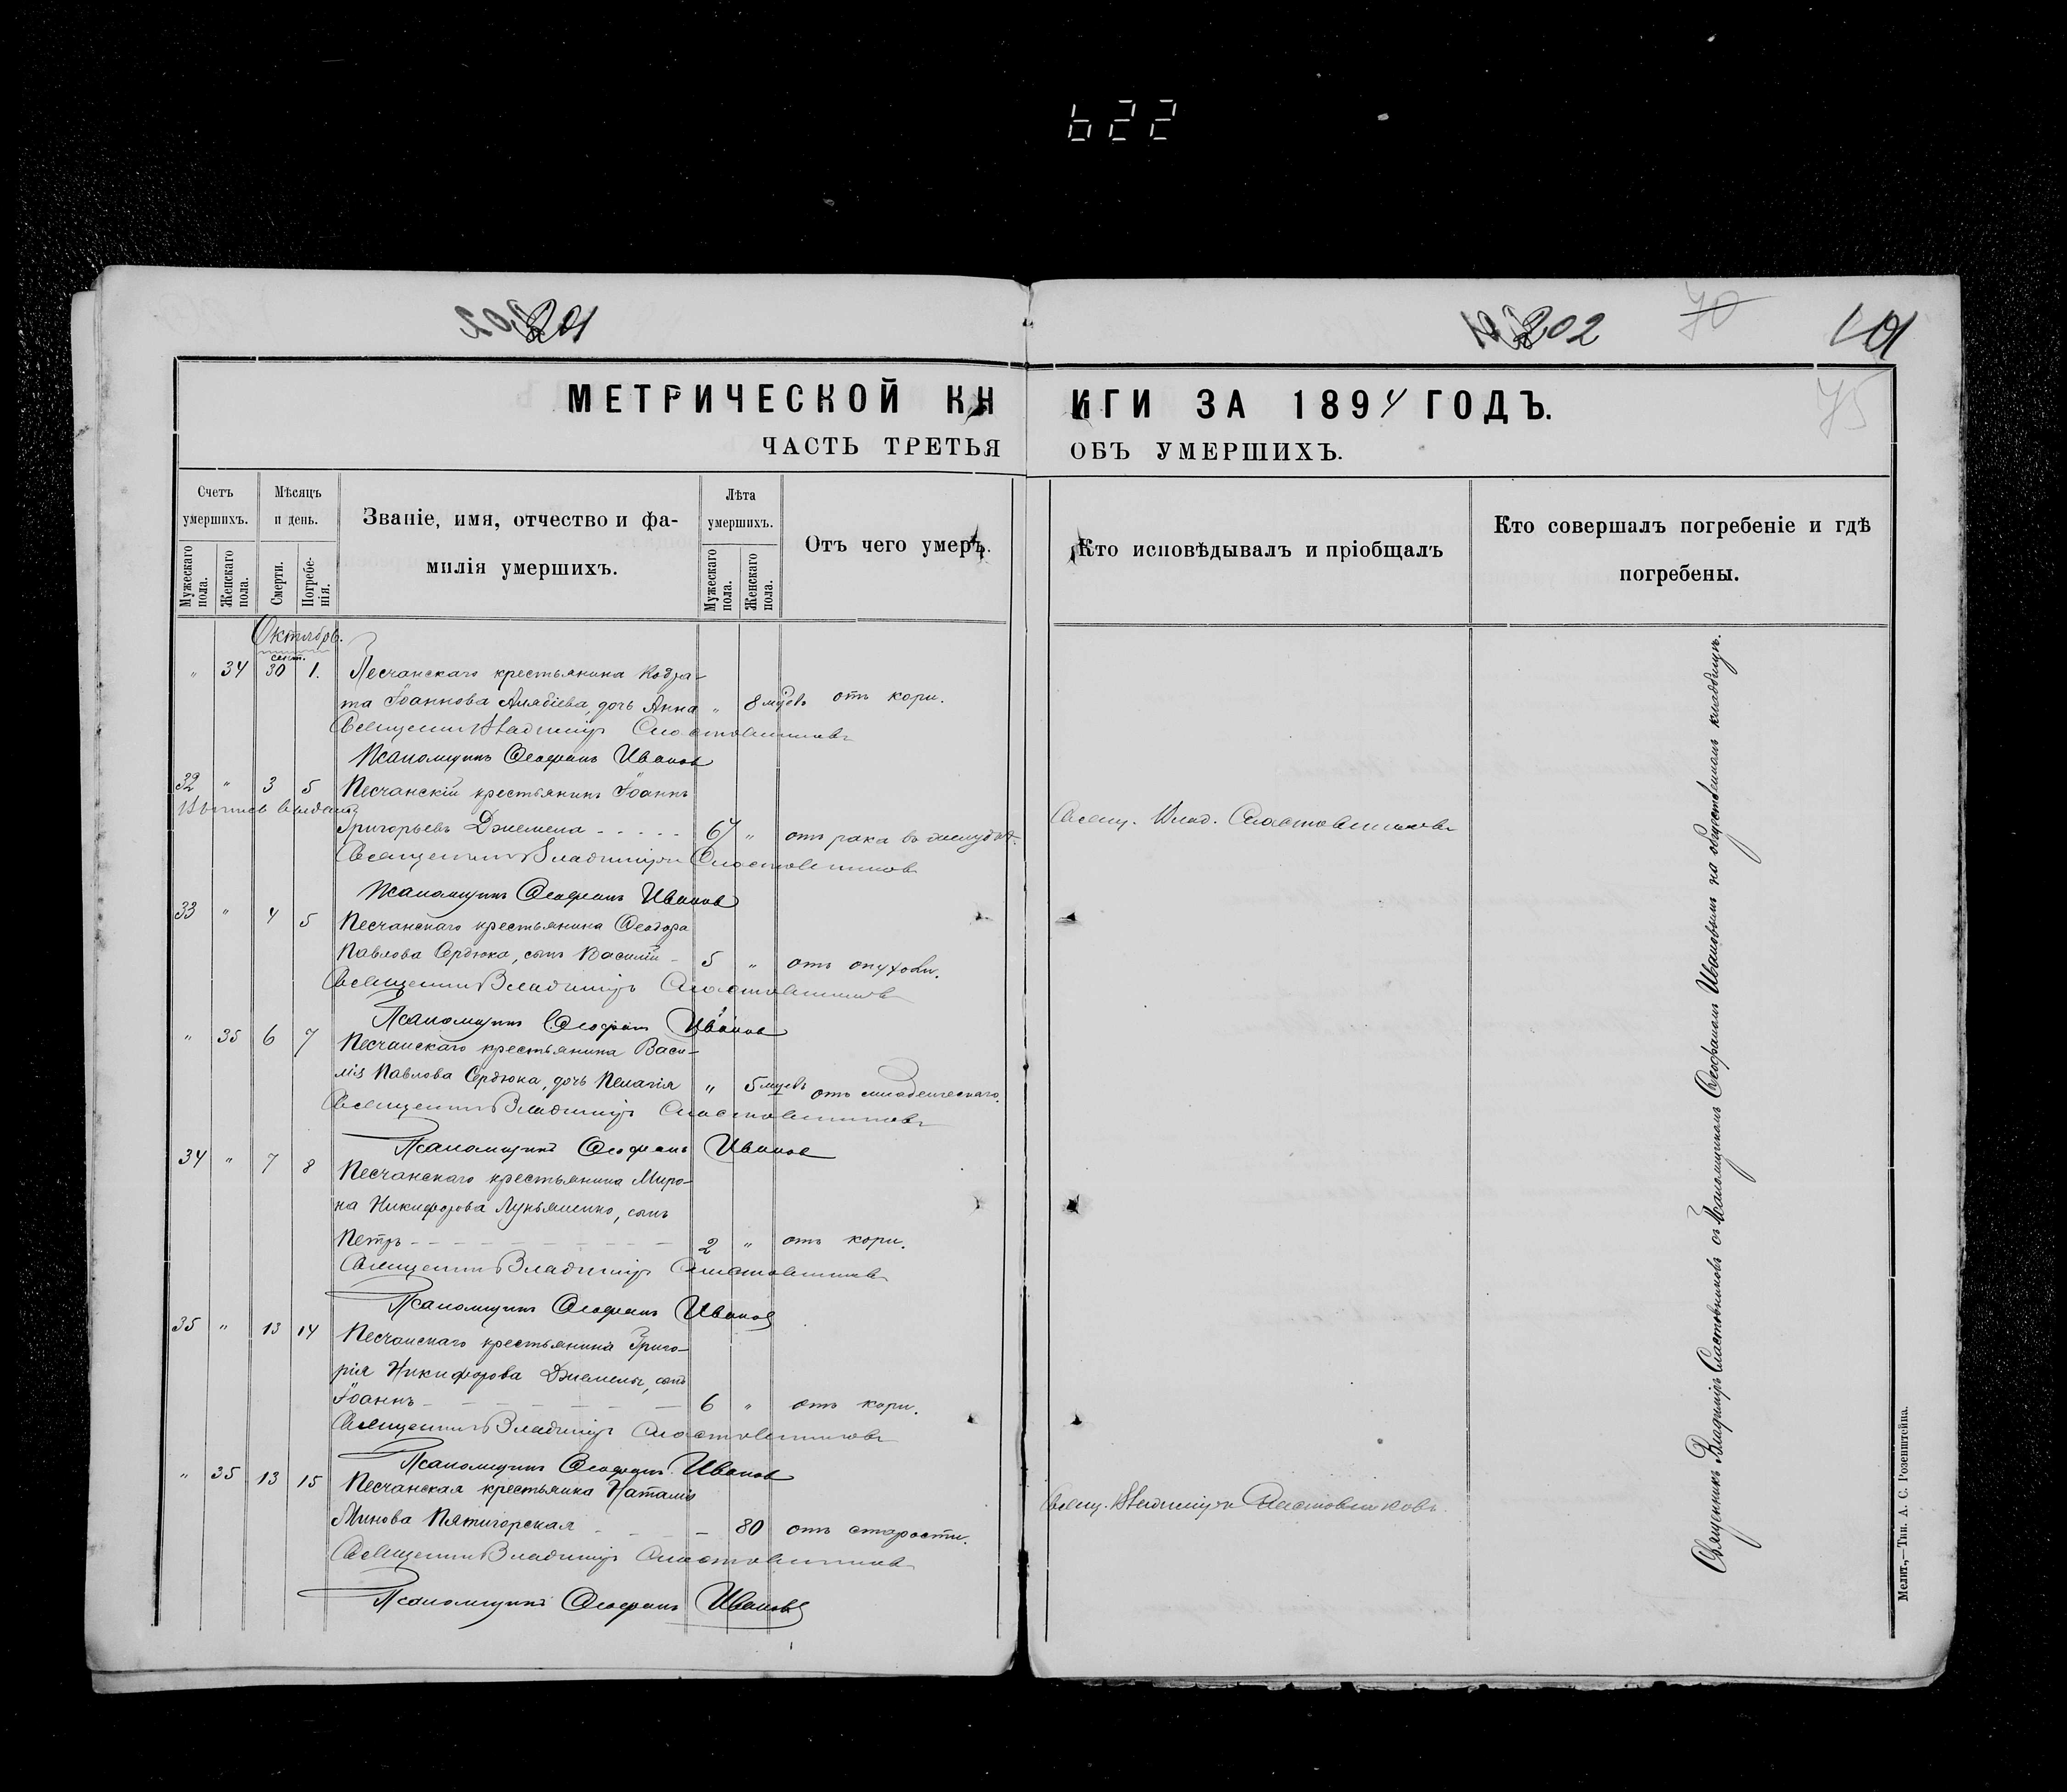 622
201
202
70
101
75
МЕТРИЧЕСКОЙ КН
ИГИ ЗА 1894 ГОДЪ.
ЧАСТЬ ТРЕТЬЯ
ОБЪ УМЕРШИХЪ.
Счетъ умершихъ.
Мужескаго пола.
Женскаго пола.
Мѣсяцъ и день.
Смерти.
Погребенія.
Званіе, имя, отчество и фамилія умершихъ.
Лѣта умершихъ.
Мужескаго пола.
Женскаго пола.
Отъ чего умеръ.
Кто исповѣдывалъ и пріобщалъ
Кто совершалъ погребеніе и гдѣ
погребены.
Октябрь.
сент.
" 34 30 1. Песчанскаго крестьянина Кодра-
та Іоаннова Алябіева, дочь Анна " 8 мцевъ отъ кори.
Священникъ Владиміръ Сластовниковъ
Псаломщикъ Ѳеофанъ Ивановъ
32 " 3 5 Песчанскій крестьянинъ Іоаннъ
Выпись выдана
Григорьевъ Джемела - - - - - 67 " отъ рака въ желудкѣ.
Свящ. Влад. Сластовниковъ
Священникъ Владиміръ Сластовниковъ
Псаломщикъ Ѳеофанъ Ивановъ
33 " 4 5 Песчанскаго крестьянина Ѳеодора
Павлова Сердюка, сынъ Василій - 5 " отъ опухоли.
Священникъ Владиміръ Сластовниковъ
Псаломщикъ Ѳеофанъ Ивановъ
" 35 6 7 Песчанскаго крестьянина Васи-
лія Павлова Сердюка, дочь Пелагія " 5 мцевъ отъ младенческаго.
Священникъ Владиміръ Сластовниковъ
Псаломщикъ Ѳеофанъ Ивановъ
34 " 7 8 Песчанскаго крестьянина Миро-
на Никифорова Лукьяненко, сынъ
Петръ - - - - - - - - 2 " отъ кори.
Священникъ Владиміръ Сластовниковъ
Псаломщикъ Ѳеофанъ Ивановъ
35 " 13 14 Песчанскаго крестьянина Григо-
рія Никифорова Джемелы, сынъ
Іоаннъ - - - - - - - 6 " отъ кори.
Священникъ Владиміръ Сластовниковъ
Псаломщикъ Ѳеофанъ Ивановъ
" 35 13 15 Песчанская крестьянка Наталія
Минова Пятигорская - - - - 80 отъ старости.
Свящ. Владиміръ Сластовниковъ.
Священникъ Владиміръ Сластовниковъ
Псаломщикъ Ѳеофанъ Ивановъ
Священникъ Владиміръ Сластовниковъ съ Псаломщикомъ Ѳеофаномъ Ивановымъ на общественномъ кладбищѣ.
Мелит.,—Тип. А. С. Розенштейна.